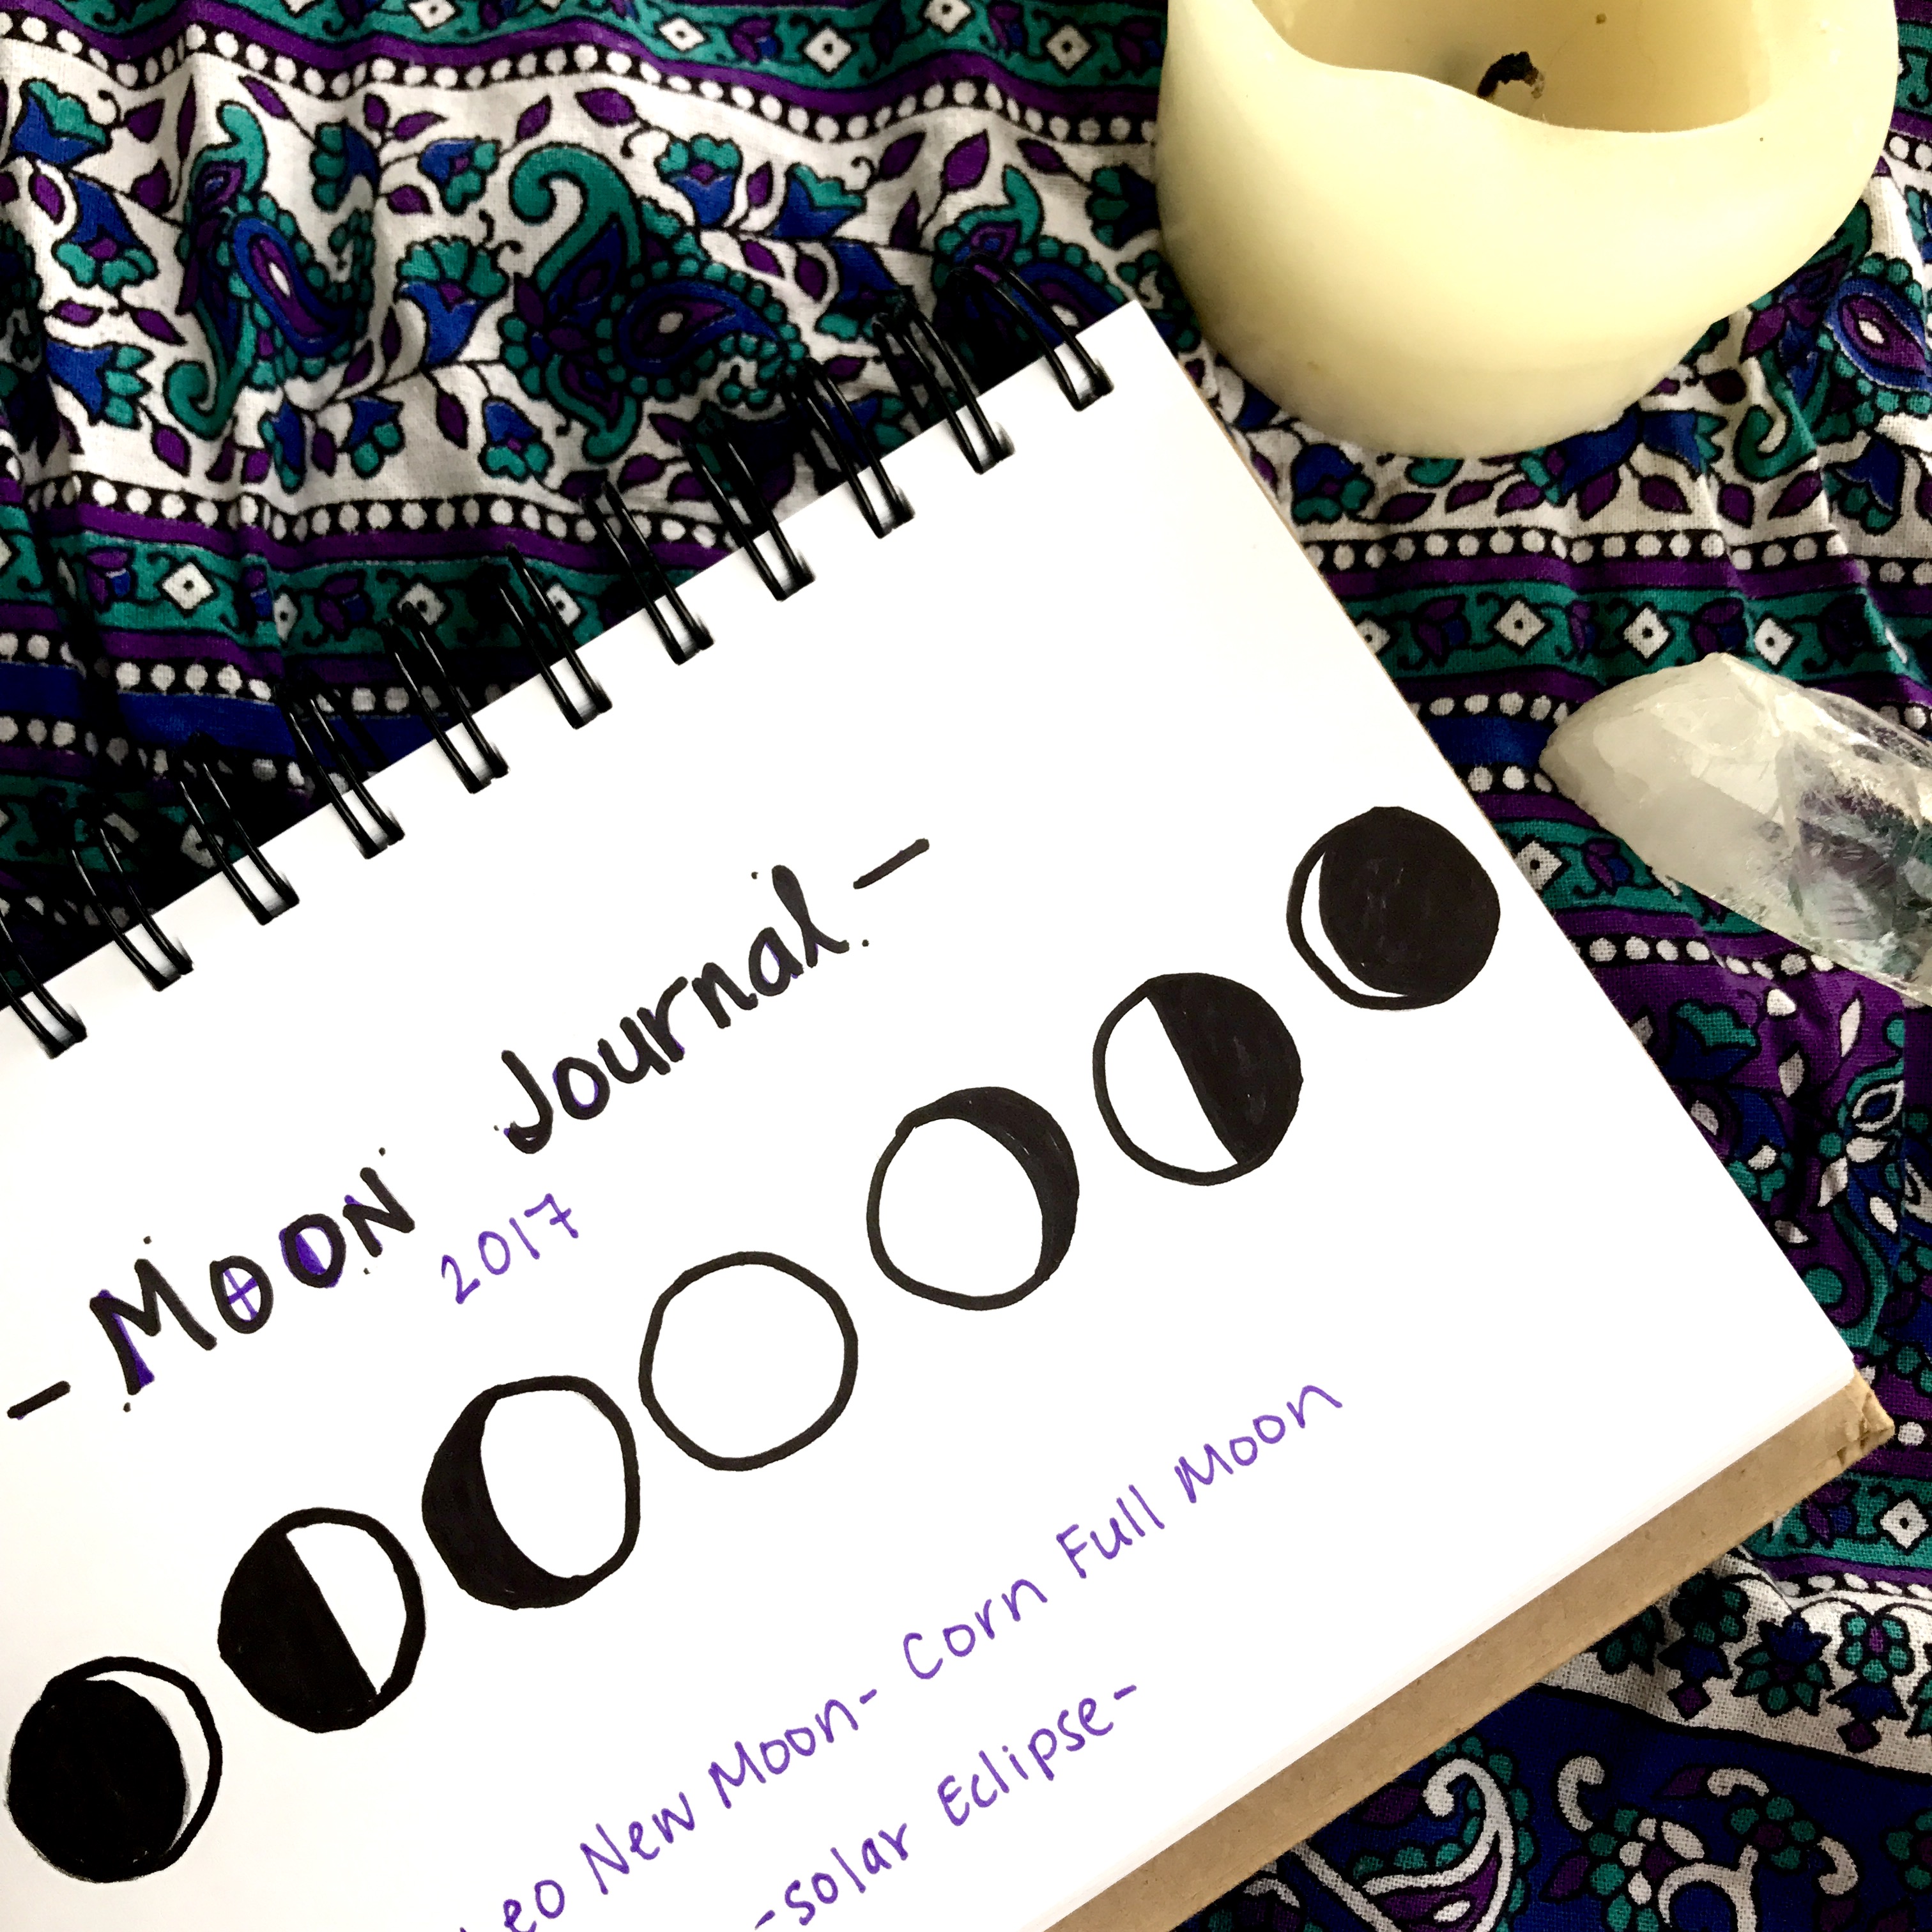 - Moon Journal -
2017
Leo New Moon - Corn Full Moon
- solar Eclipse -